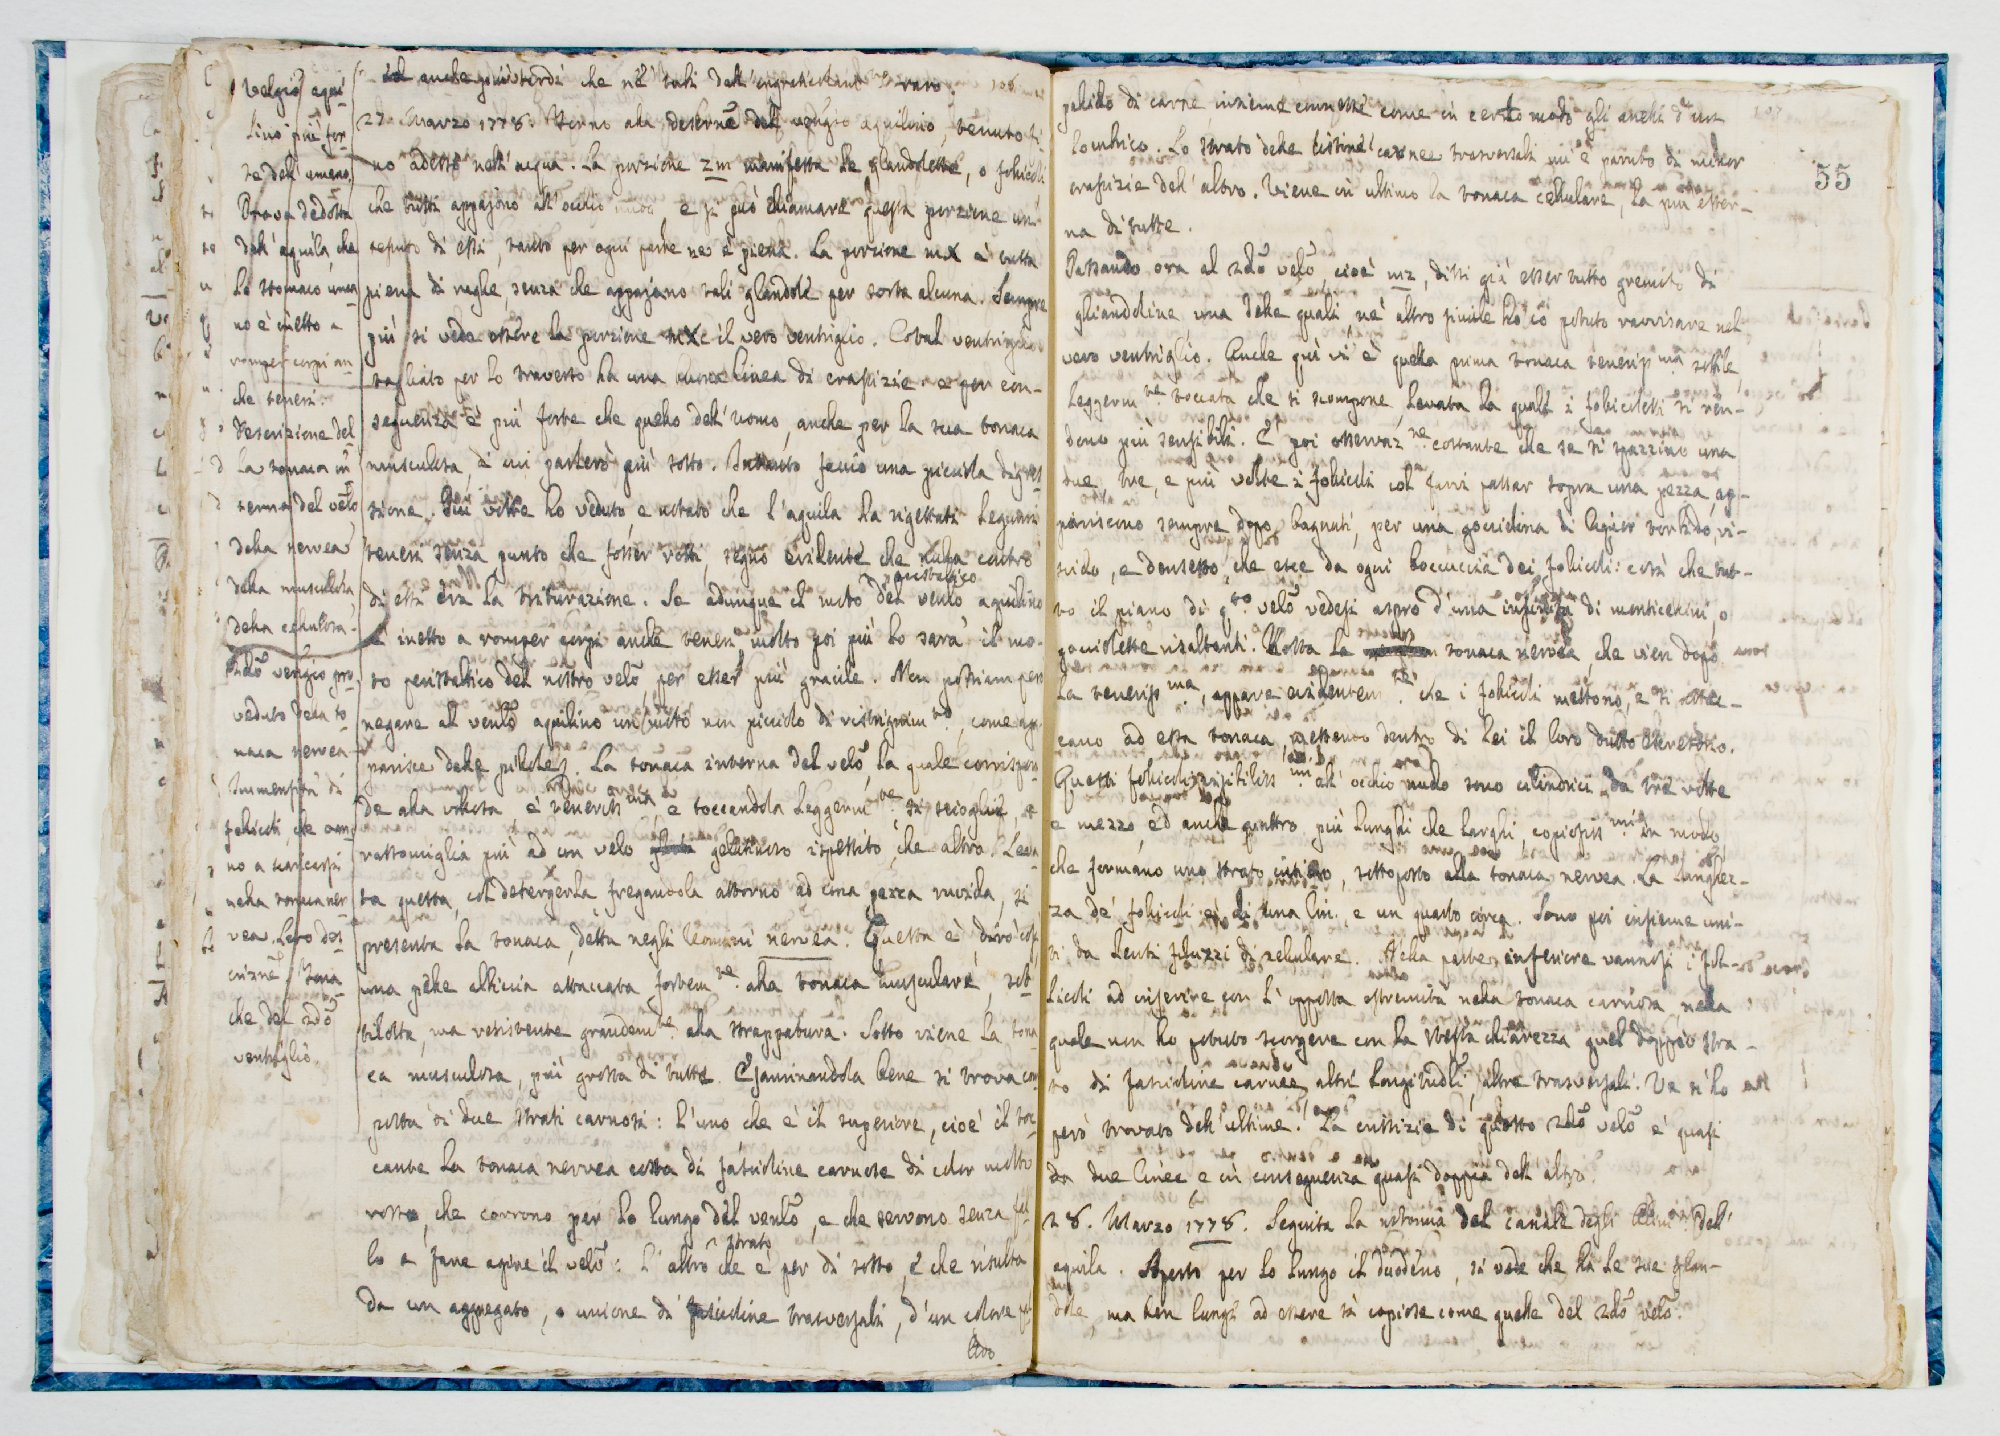 106
velgio aqui-
lino più for-
te dell'umano.
Prova dedotta
dall'aquila, che
lo stomaco uma-
no è inetto a
romper corpi an-
che teneri.
Descrizione del-
la tonaca in-
terna del velo,
della nervea,
della musculosa,
della cellulosa.
2do velgio pro-
veduto della to-
naca nervea.
Immensità di
follicoli, che van-
no a scaricarsi
nella tonaca ner-
vea. Loro des-
crizne. Tona-
che del 2do
ventriglio.
ed anche più tardi che ne' tubi dell'
27. Marzo 1778. Torno alla descrne del velgio aquilino, tenuto fi-
no adesso nell'acqua. La porzione zm manifesta le glandolette, o follicoli
che tutti appajono all'occhio nudo, e si può chiamare questa porzione un
tessuto di essi, tanto per ogni parte ne è piena. La porzione mx è tutta
piena di rughe, senza che appajano tali glandole per sorta alcuna. Sempre
più si vede essere la porzione mx il vero ventriglio. Cotal ventriglio
tagliato per lo traverso ha una linea di crassizie, e per con-
seguenza è più forte che quello dell'Uomo, anche per la sua tonaca
musculosa, di cui parlerò più sotto. Intanto faccio una piccola digres-
sione. Più volte ho veduto, e notato che l'aquila ha rigettati legumi
teneri senza punto che fosser rotti, segno evidente che nulla contro
di essi era la triturazione. Se adunque il moto del venlo aquilino
peristaltico
è inetto a romper corpi anche teneri, molto poi più lo sarà il mo-
to peristaltico del nostro velo, per esser più gracile. Non possiam però
negare al venlo aquilino un moto non piccolo di ristrignimto, come ap-
parisce dalle pillole. La tonaca interna del velo, la quale corrispon-
de alla villosa, è teneriss.ma, e toccandola leggerm.te si scioglie, e
rassomiglia più ad un velo gelatinoso rispettito, che altro. Leva-
ta questa, col detergerla fregandola attorno ad una pezza ruvida, si
presenta la tonaca, detta negli Uomini nervea. Questa è, dirò così,
una pelle albiccia attaccata fortem.te alla tonaca musculare, sot-
tilotta, ma resistente grandem.te alla strappatura. Sotto viene la tona-
ca musculosa, più grossa di tutte. Esaminandola bene si trova com-
posta di due strati carnosi: l'uno che è il superiore, cioè il toc-
cante la tonaca nervea costa di fascioline carnose di color molto
rosso, che corrono per lo lungo del venlo, e che servono senza fal-
lo a fare agire il velo: l'altro strato che è per di sotto, e che risulta
da un aggregato, o unione di fascioline trasversali, d'un colore pal-
lido
107
55
palido di carne insieme connesse come in certo modo gli anelli d'un
lombrico. Lo strato delle listine carnee trasversali mi è paruto di minor
crassizie dell'altro. Viene in ultimo la tonaca cellulare, la più ester-
na di tutte.
Passando ora al 2do velo, cioè mz, dissi già esser tutto gremito di
gliandoline, una delle quali, nè altro simile ho io potuto ravvisare nel
vero ventriglio. Anche qui vi è quella prima tonaca teneriss.ma sottile,
leggerm.te toccata che si scompone, levata la quale i follicoletti si ren-
dono più sensibili. È poi osservaz.ne costante che se si spazzino una
due, tre, e più volte i follicoli col farvi passar sopra una pezza, ap-
pariscono sempre dopo bagnati, per una gocciolina di liquor torbido, vi-
scido, e densetto, che esce da ogni boccuccia dei follicoli: così che tut-
to il piano di q.to velo vedesi aspro d'una infinità di monticellini, o
gocciolette risaltanti. Rotta la tonaca nervea, che vien dopo
la teneriss.ma, appare evidentem.te che i follicoli mettono, e si attac-
cano ad essa tonaca, mettendo dentro di lei il loro dutto escretorio.
Questi follicoli visibiliss.mi all'occhio nudo sono cilindrici, da tre volte
e mezzo, ed anche quattro più lunghi che larghi, copiosiss.mi in modo
che formano uno strato intiero, sottoposto alla tonaca nervea. La lunghez-
za de' follicoli è di una lin. e un quarto circa. Sono poi insieme uni-
ti da lenti filuzzi di cellulare. Nella parte inferiore vannosi i fol-
licoli ad inserire con l'opposta estremità nella tonaca carnosa, nella
quale non ho potuto scorgere con la stessa chiarezza quel doppio stra-
to di fascioline carnee, altre longitudli, altre trasversali. Ve n'ho
però trovato dell'ultime. La crassizie di questo 2do velo è quasi
da due linee, e in conseguenza quasi doppia dell'altro.
28. Marzo 1778. Seguita la notomia del canale degli alimti dell'
aquila. Aperto per lo lungo il duodeno, si vede che ha le sue glan-
dole, ma ben lungi ad essere sì copiose come quelle del 2do velo.